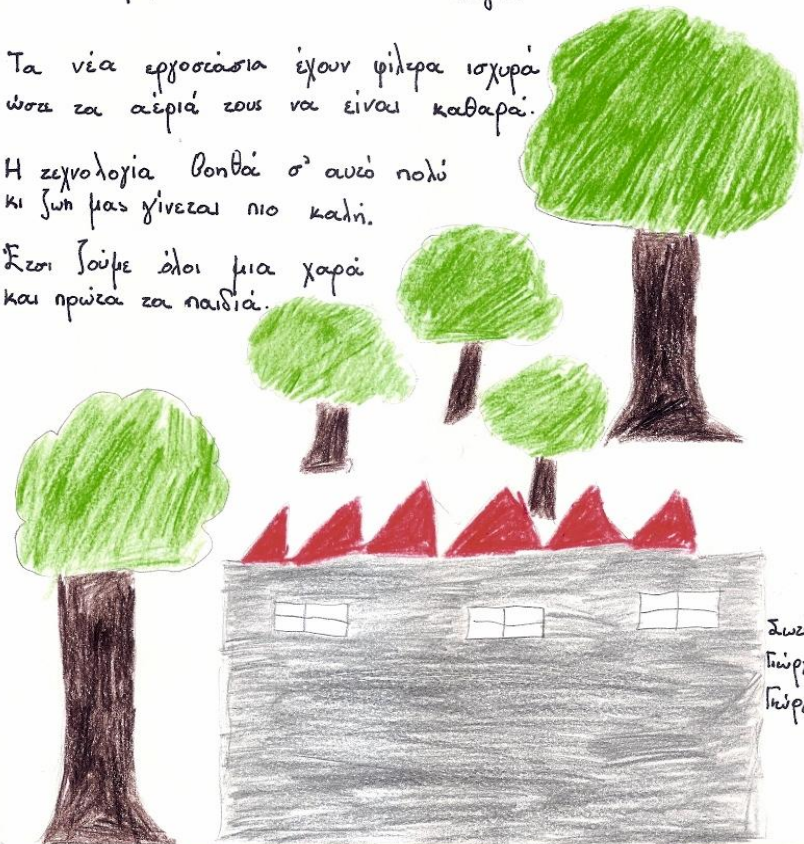 Τα νέα εργοστάσια έχουν φίλτρα ισχυρά
ώστε τα αέριά τους να είναι καθαρά.
Η τεχνολογία βοηθά σ' αυτό πολύ
κι ζωη μας γίνεται πιο καλή.
Έτσι ζούμε όλοι μια χαρά
και πρώτα τα παιδιά.